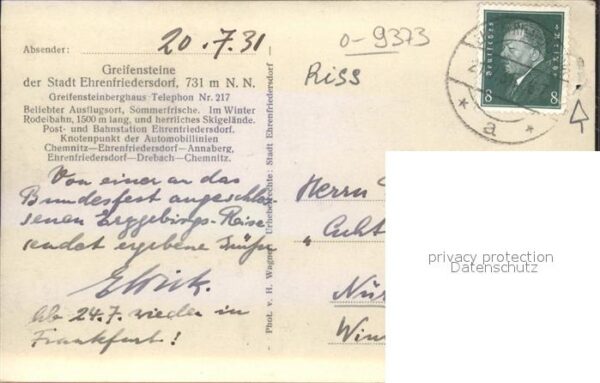 Absender: 20.7.31
0-9373
Riss
Greifensteine
der Stadt Ehrenfriedersdorf, 731 m N. N.
Greifensteinberghaus Telephon Nr. 217
Beliebter Ausflugsort, Sommerfrische. Im Winter
Rodelbahn, 1500 m lang, und herrliches Skigelände.
Post- und Bahnstation Ehrenfriedersdorf.
Knotenpunkt der Automobillinien
Chemnitz—Ehrenfriedersdorf—Annaberg,
Ehrenfriedersdorf—Drebach—Chemnitz.
Von einer an das
Bundesfest angeschlos-
senen Erzgebirgs-Reise
sendet ergebene Grüße
Ab 24.7. wieder in
Frankfurt!
Phot. v. H. Wagner Urheberrechte: Stadt Ehrenfriedersdorf
Deutsches Reich
8 8
a
Herrn
Nür
privacy protection
Datenschutz